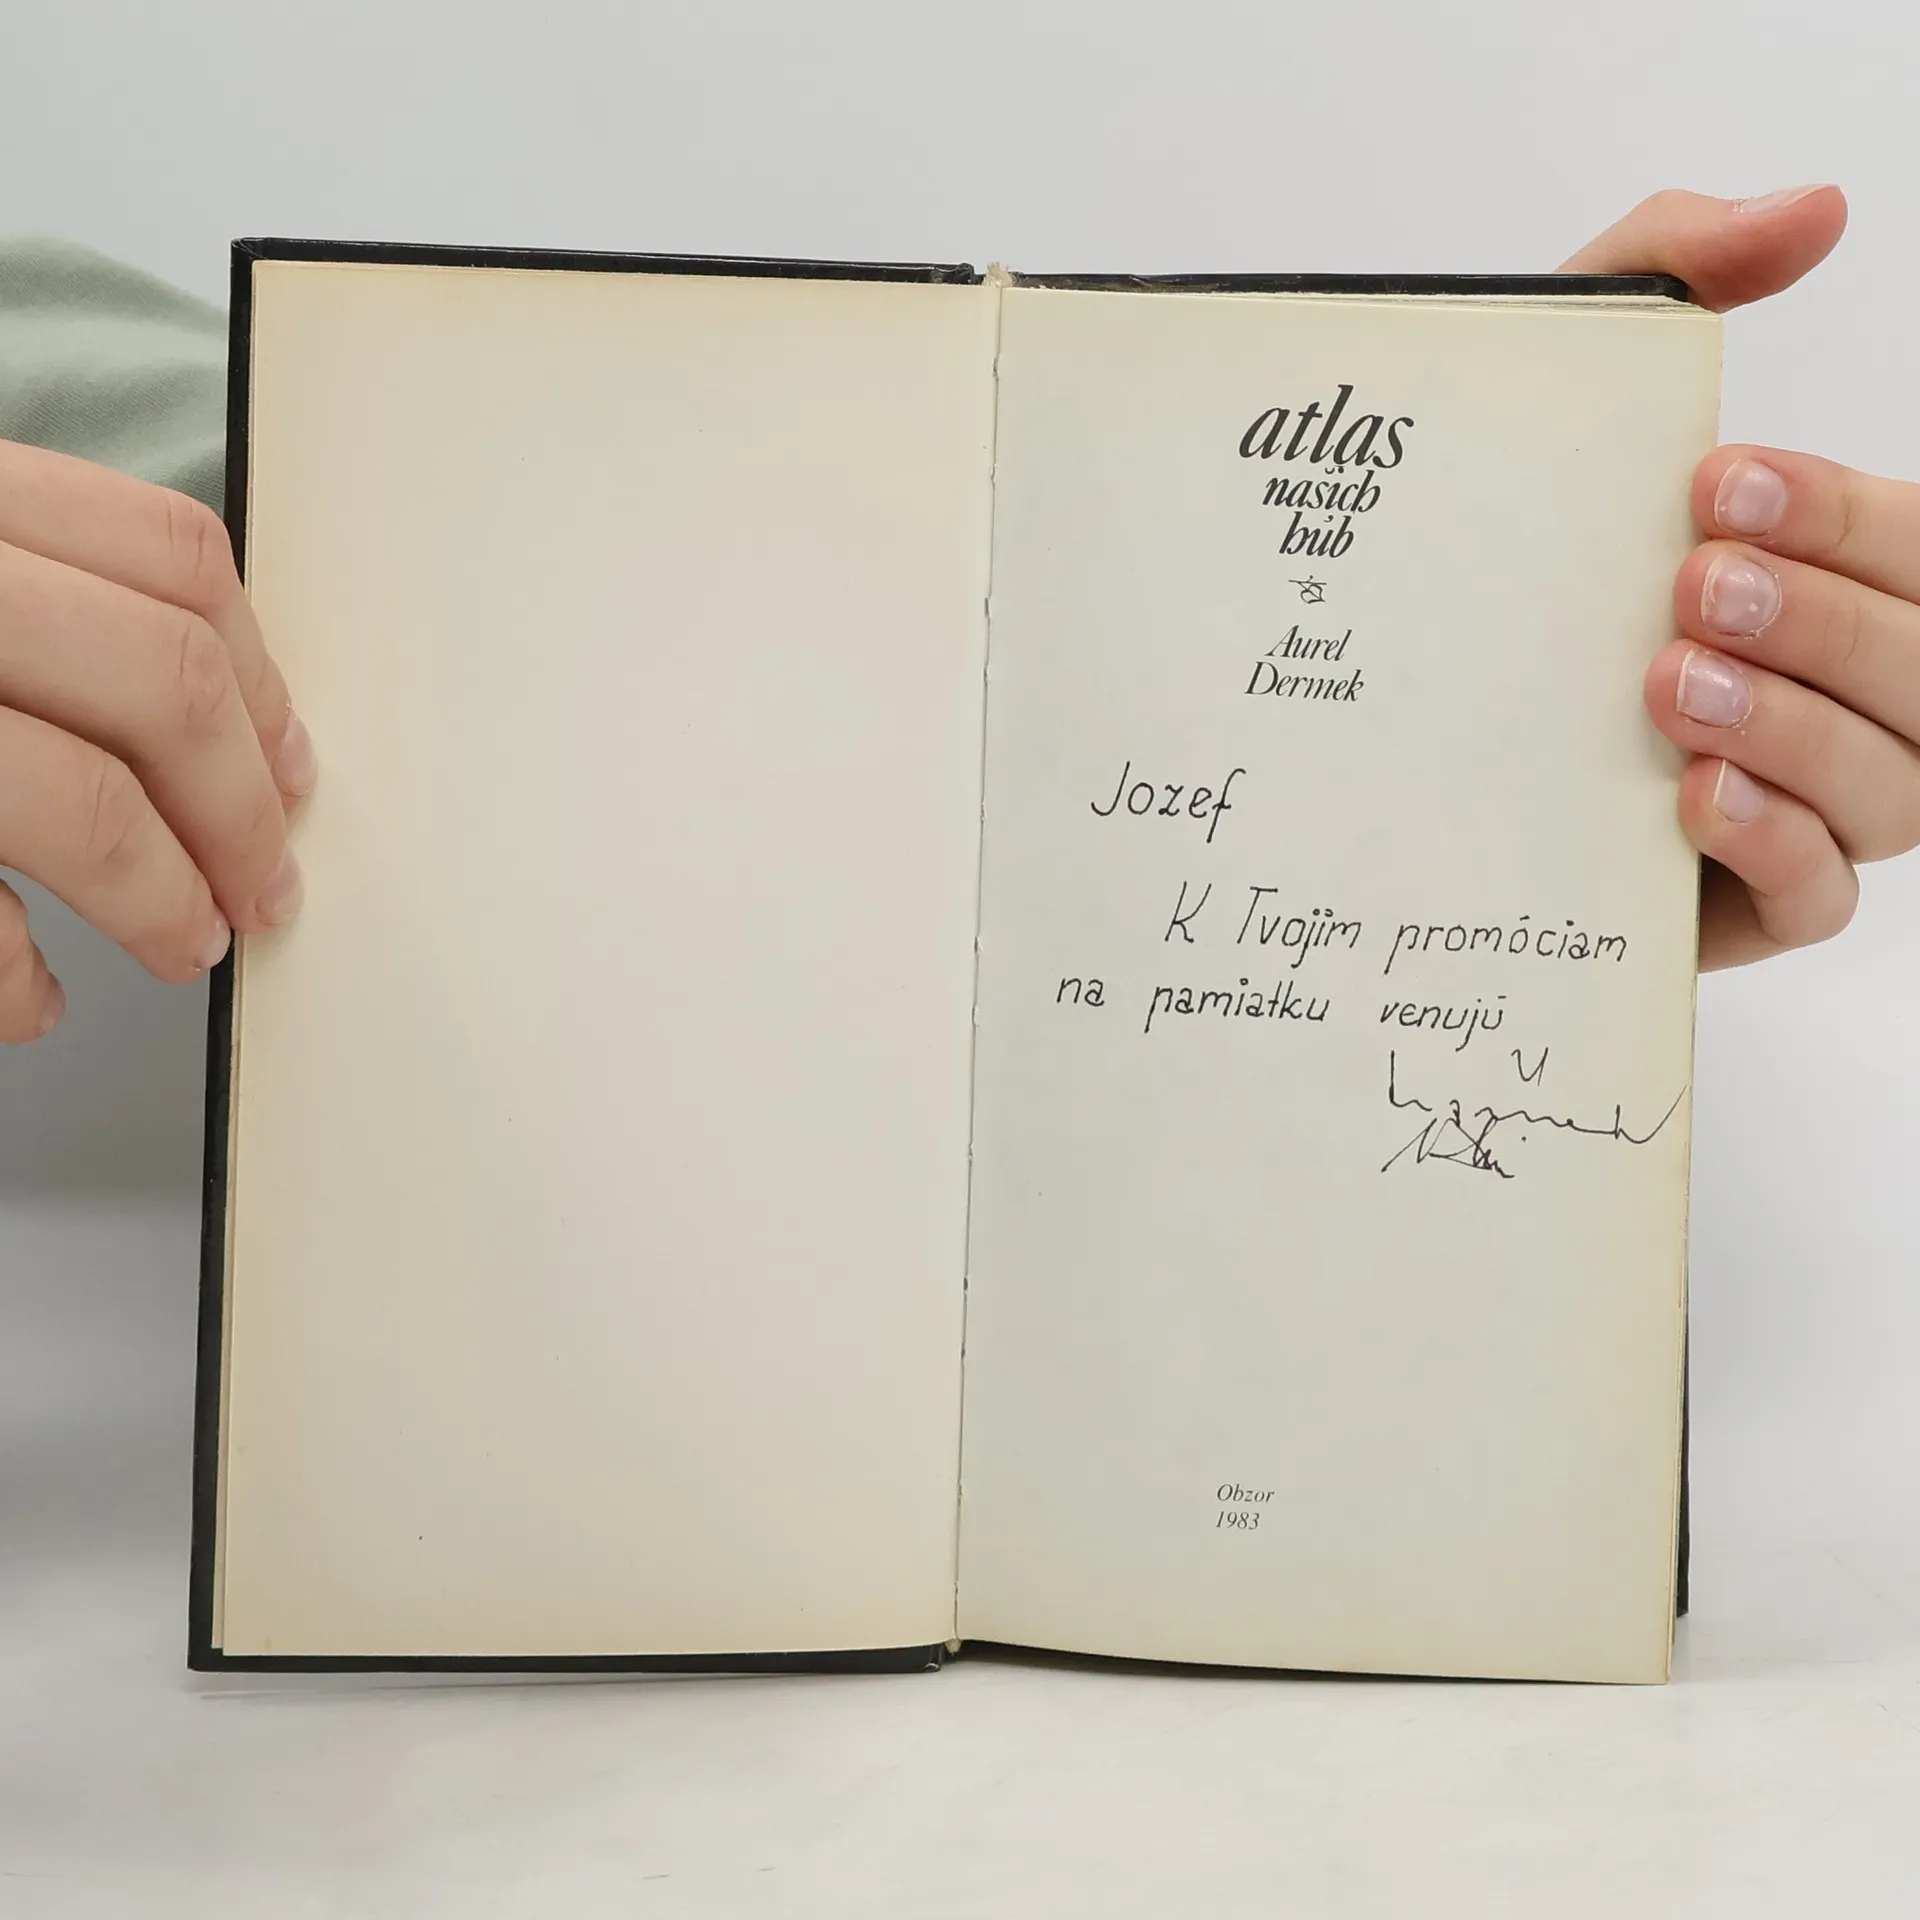 atlas
našich
húb
Aurel
Dermek
Jozef
K Tvojim promóciam
na pamiatku venujú
Obzor
1983